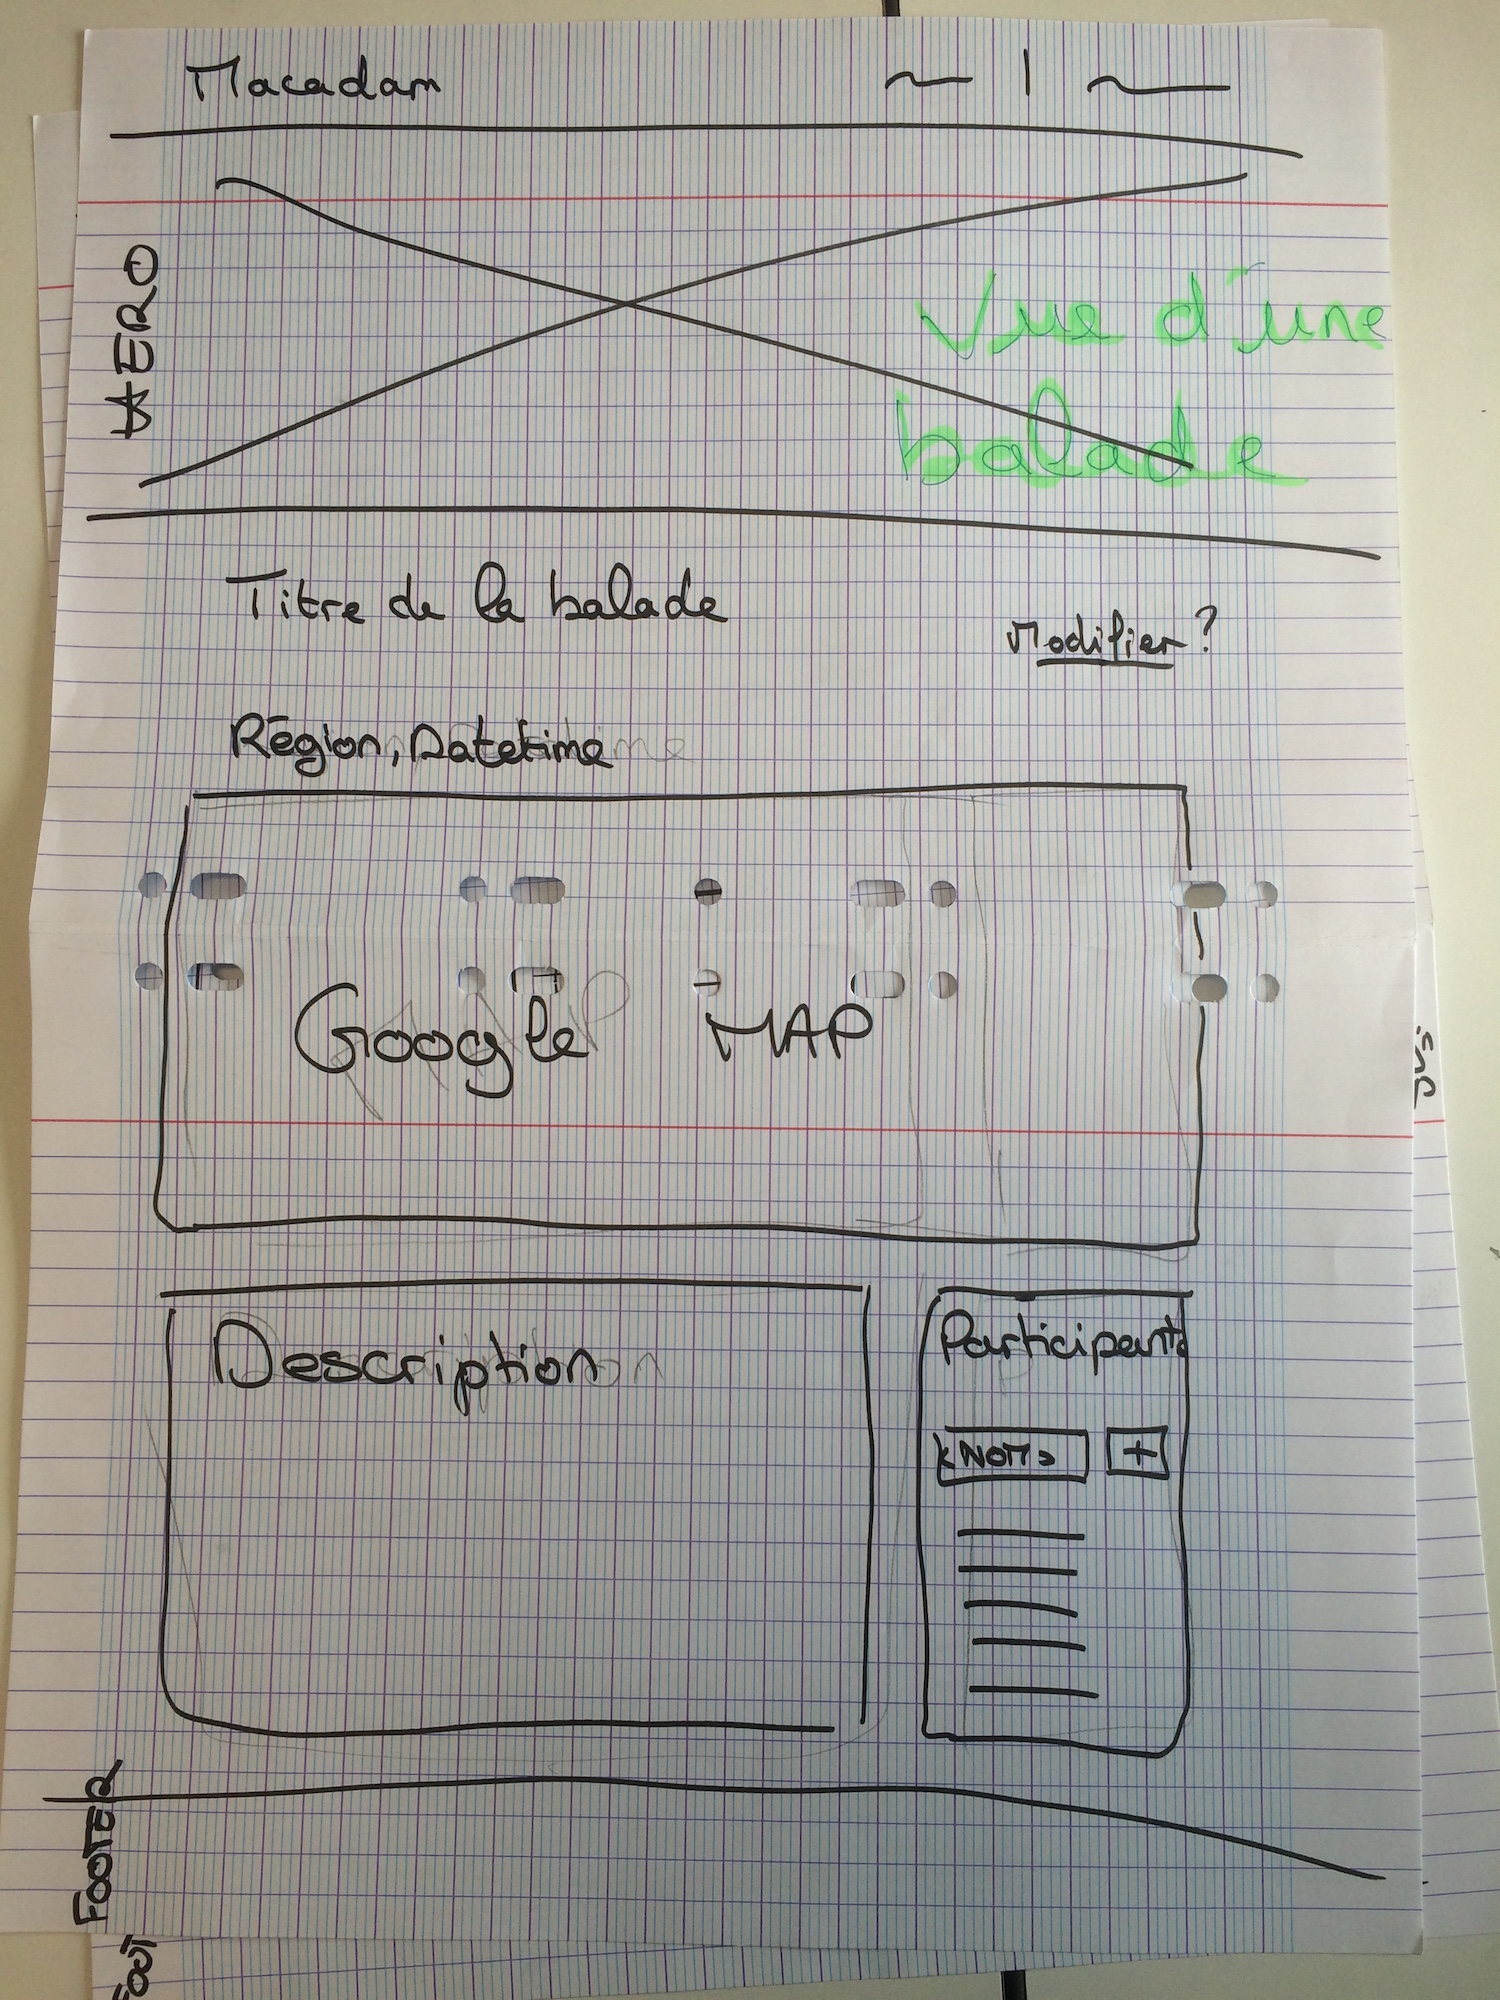 Macadam
HERO
Vue d'une
balade
Titre de la balade
Modifier ?
Région, Datetime
Google MAP
Description
Participants
<NOM>
+
FOOTER